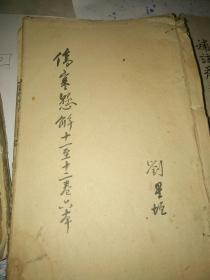 補註
劉星垣
傷寒懸解十一至十二卷六本